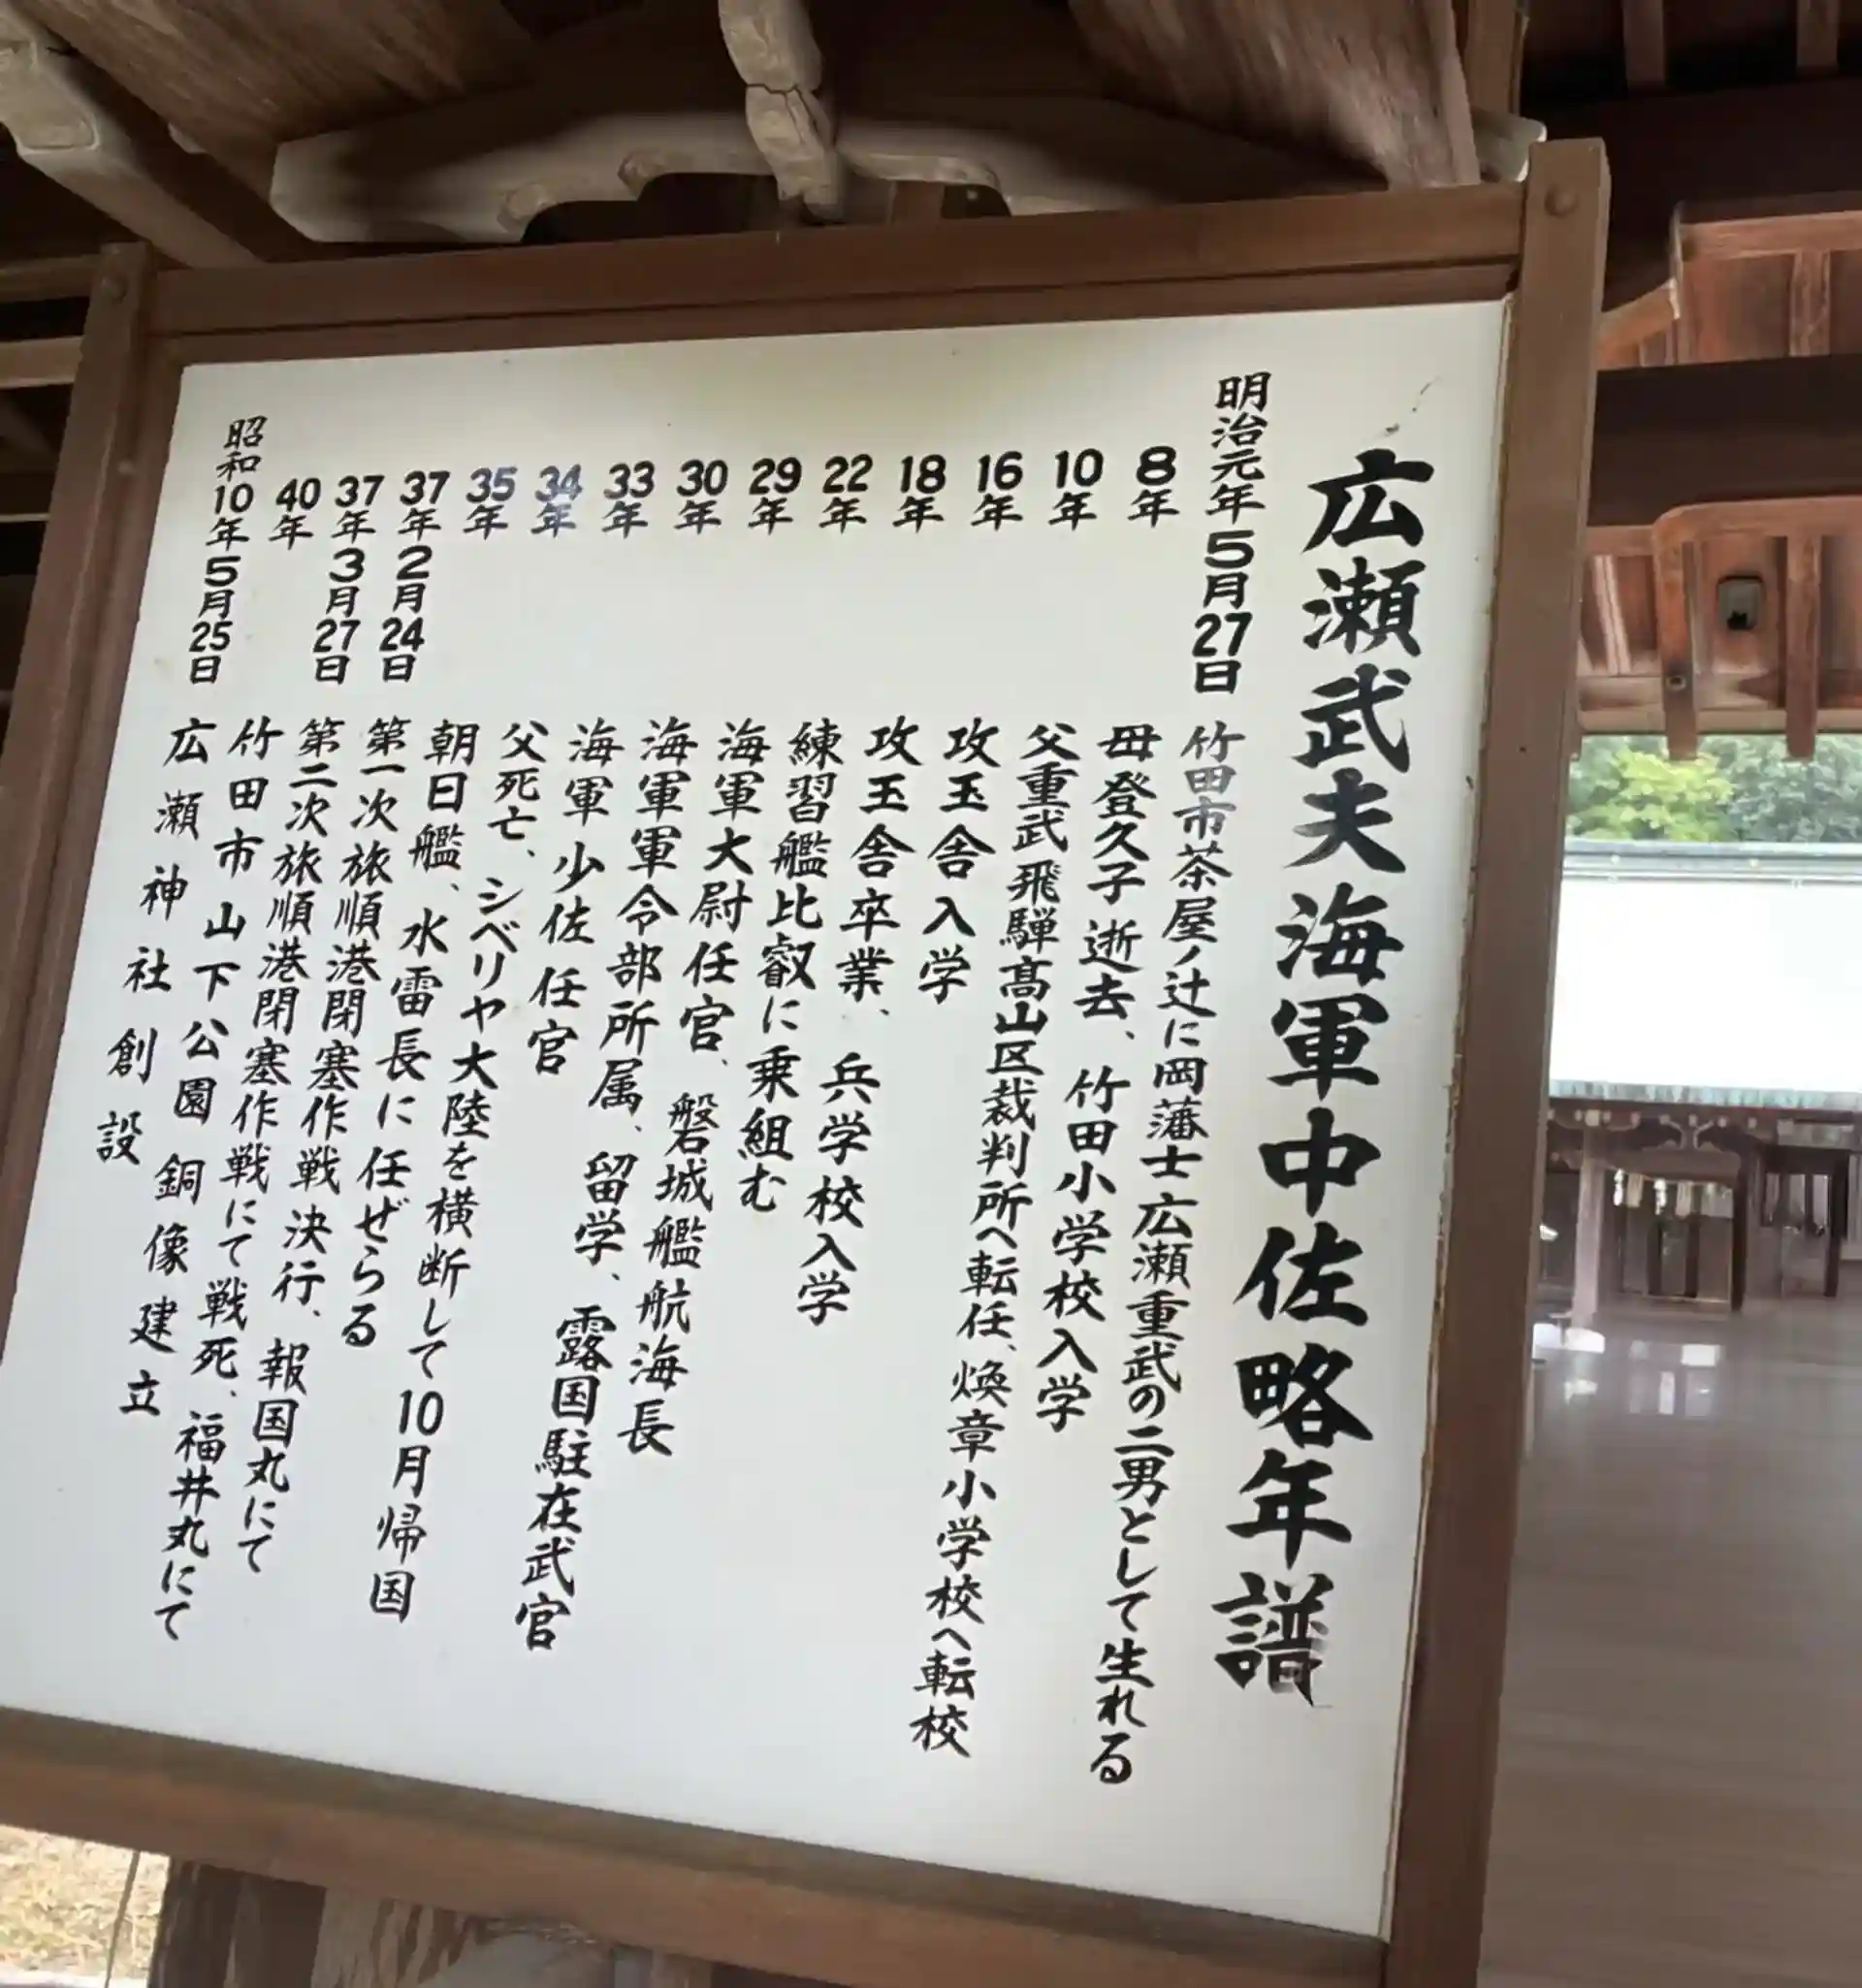 広瀬武夫海軍中佐略年譜
明治元年5月27日 竹田市茶屋ノ辻に岡藩士広瀬重武の二男として生れる
8年 母登久子逝去、竹田小学校入学
10年 父重武飛騨高山区裁判所へ転任、煥章小学校へ転校
16年 攻玉舎入学
18年 攻玉舎卒業、兵学校入学
22年 練習艦比叡に乗組む
29年 海軍大尉任官、磐城艦航海長
30年 海軍軍令部所属、留学、露国駐在武官
33年 海軍少佐任官
34年 父死亡、シベリヤ大陸を横断して10月帰国
35年 朝日艦、水雷長に任ぜらる
37年2月24日 第一次旅順港閉塞作戦決行、報国丸にて
37年3月27日 第二次旅順港閉塞作戦にて戦死、福井丸にて
40年 竹田市山下公園銅像建立
昭和10年5月25日 広瀬神社創設